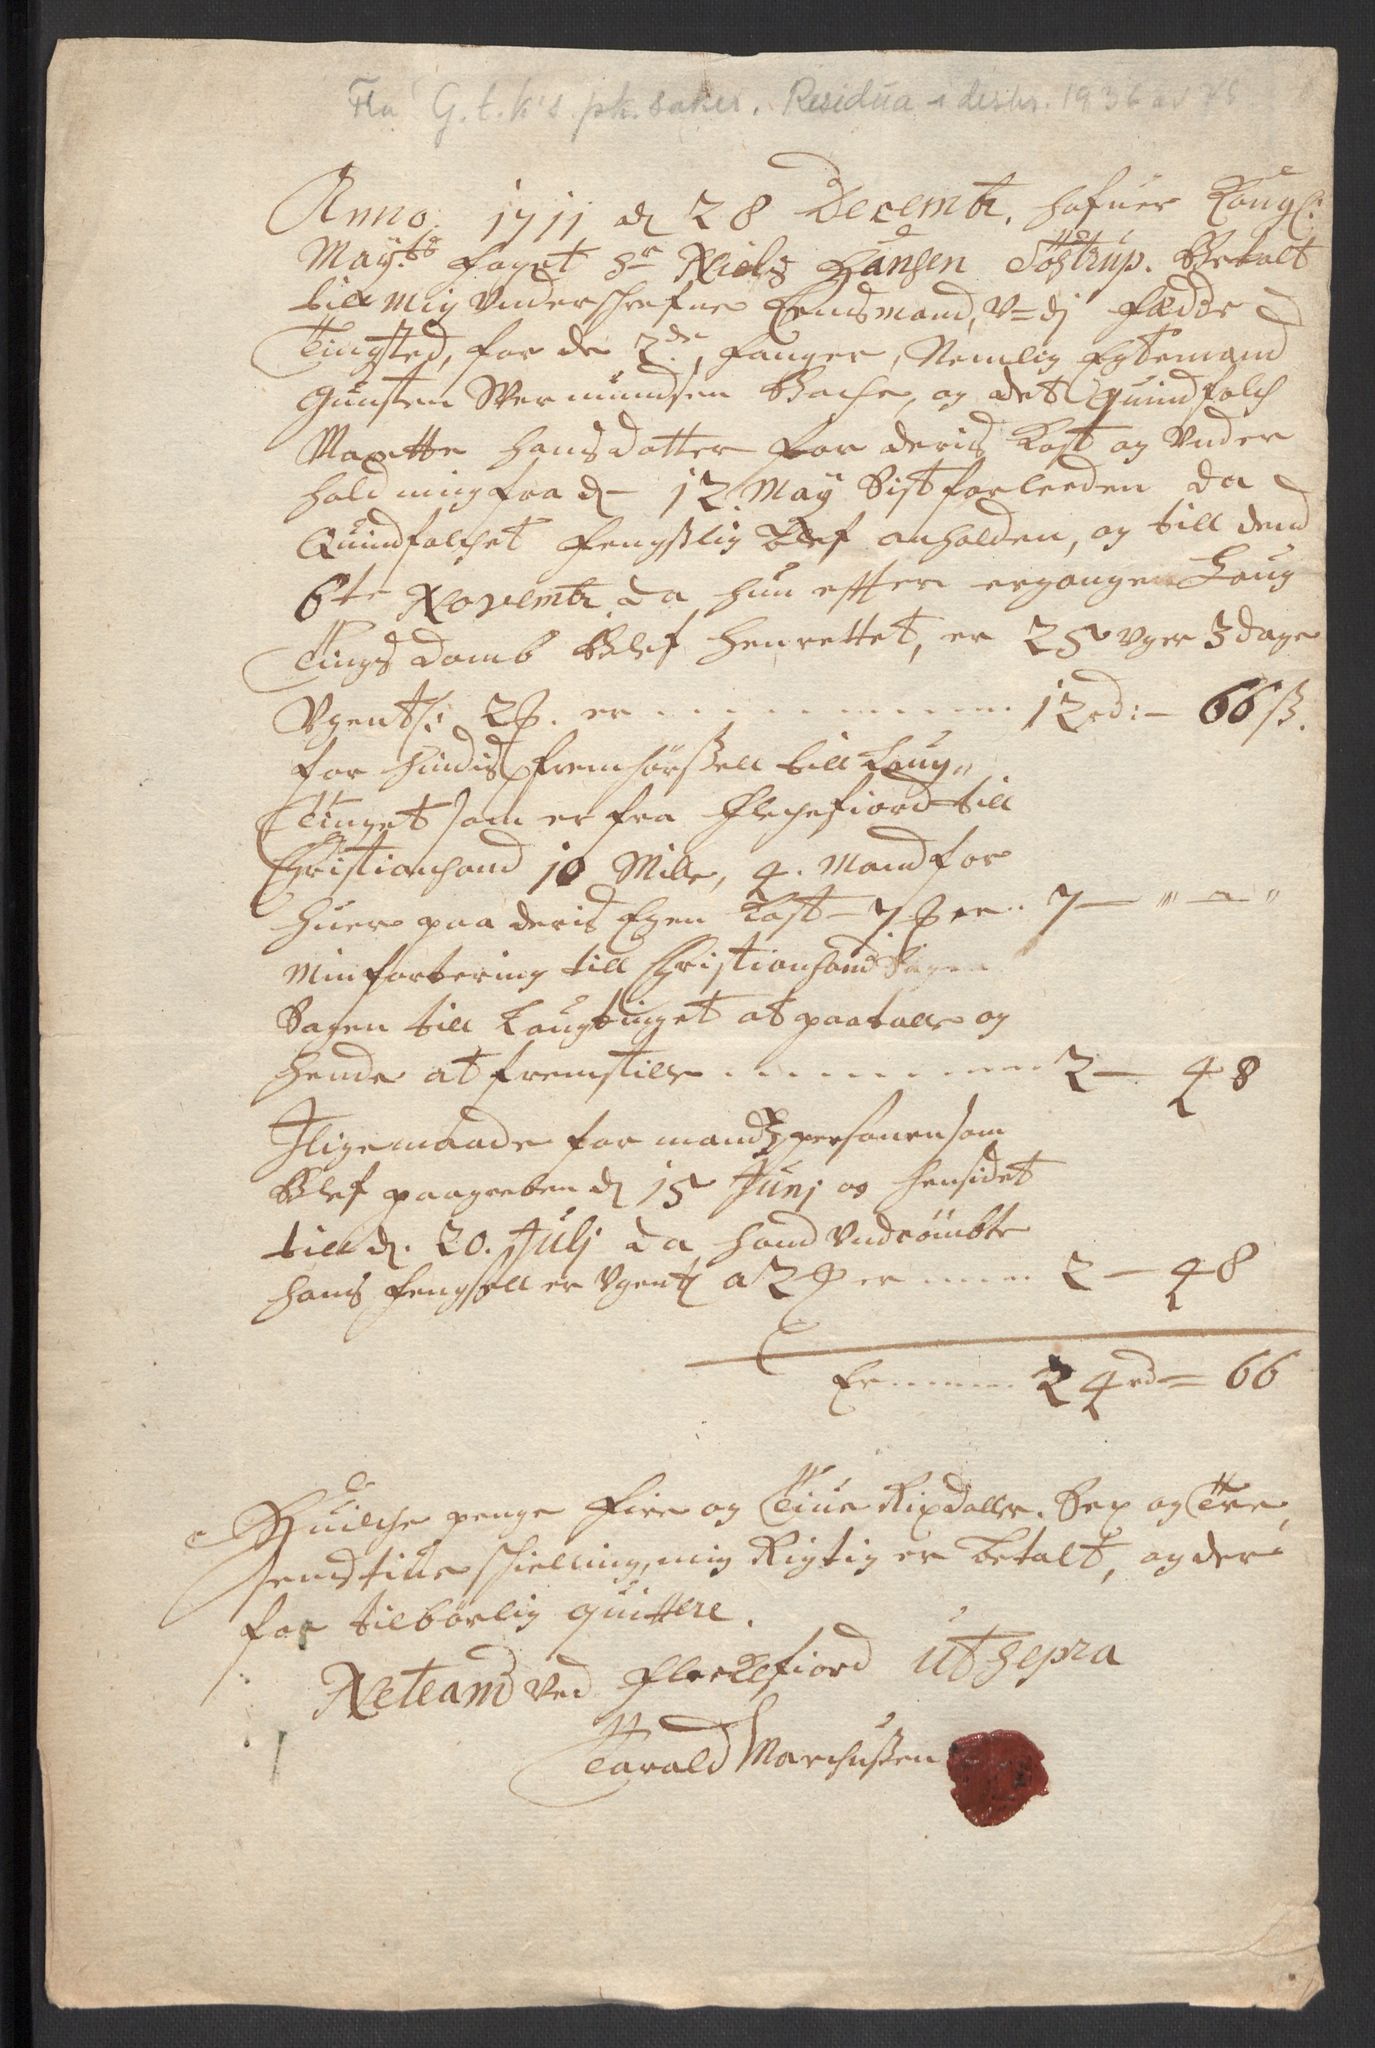 Fra G.t.k's pk. saker. Residua i desbr. 1936 av
Anno 1711 d 28 Decembr. hafuer Kongl:
Mayts. Foget Hr Niels Hansen Töstrup. Betalt
till mig Underschrefne Lensmand, v=dj Fædde
Tingsted, for de 2de, fanger, Nemlig Egtemand
Gunsten Wermundsen Bache, og det Quindfolch
Marette hansdatter for deris Kost og Under
holdning fra d 12 May Sist forleeden da
Quindfolchet fengslig blef anholden, og till dend
6te Novembr. da hun efter ergangen Laug
Tings domb blef henrettet, er 25 Uger 3 dage
Ugentl: 2 er 12 rd: - 66 ß.
for hindis fremførssell till Laug,,
Tinget som er fra Flechefiord till
Christiansand 10 Mille, 4. Mand for
huer paa deris Egen Kost - 7 er 7 - " - "
Min fortering till Christiansand
Sagen till Laugtinget at paatalle og
hende at fremstille 2 - 48
Jligemaade for mandspersonen som
Blef paagreben d 15 Junj og hensidet
till d. 20. Julj da hand Undrömbte
hans fengssell er Ugentl a 2 er 2 - 48
Er 24 rd = 66
Huilche penge Fire og Tiue Rixdaller. Sex og Tre,
sendtiue schielling, mig Rigtig er betalt, og der
for tilbørlig quittere.
Neteland ved Fleckefiord ut supra
Tarald Marchussen